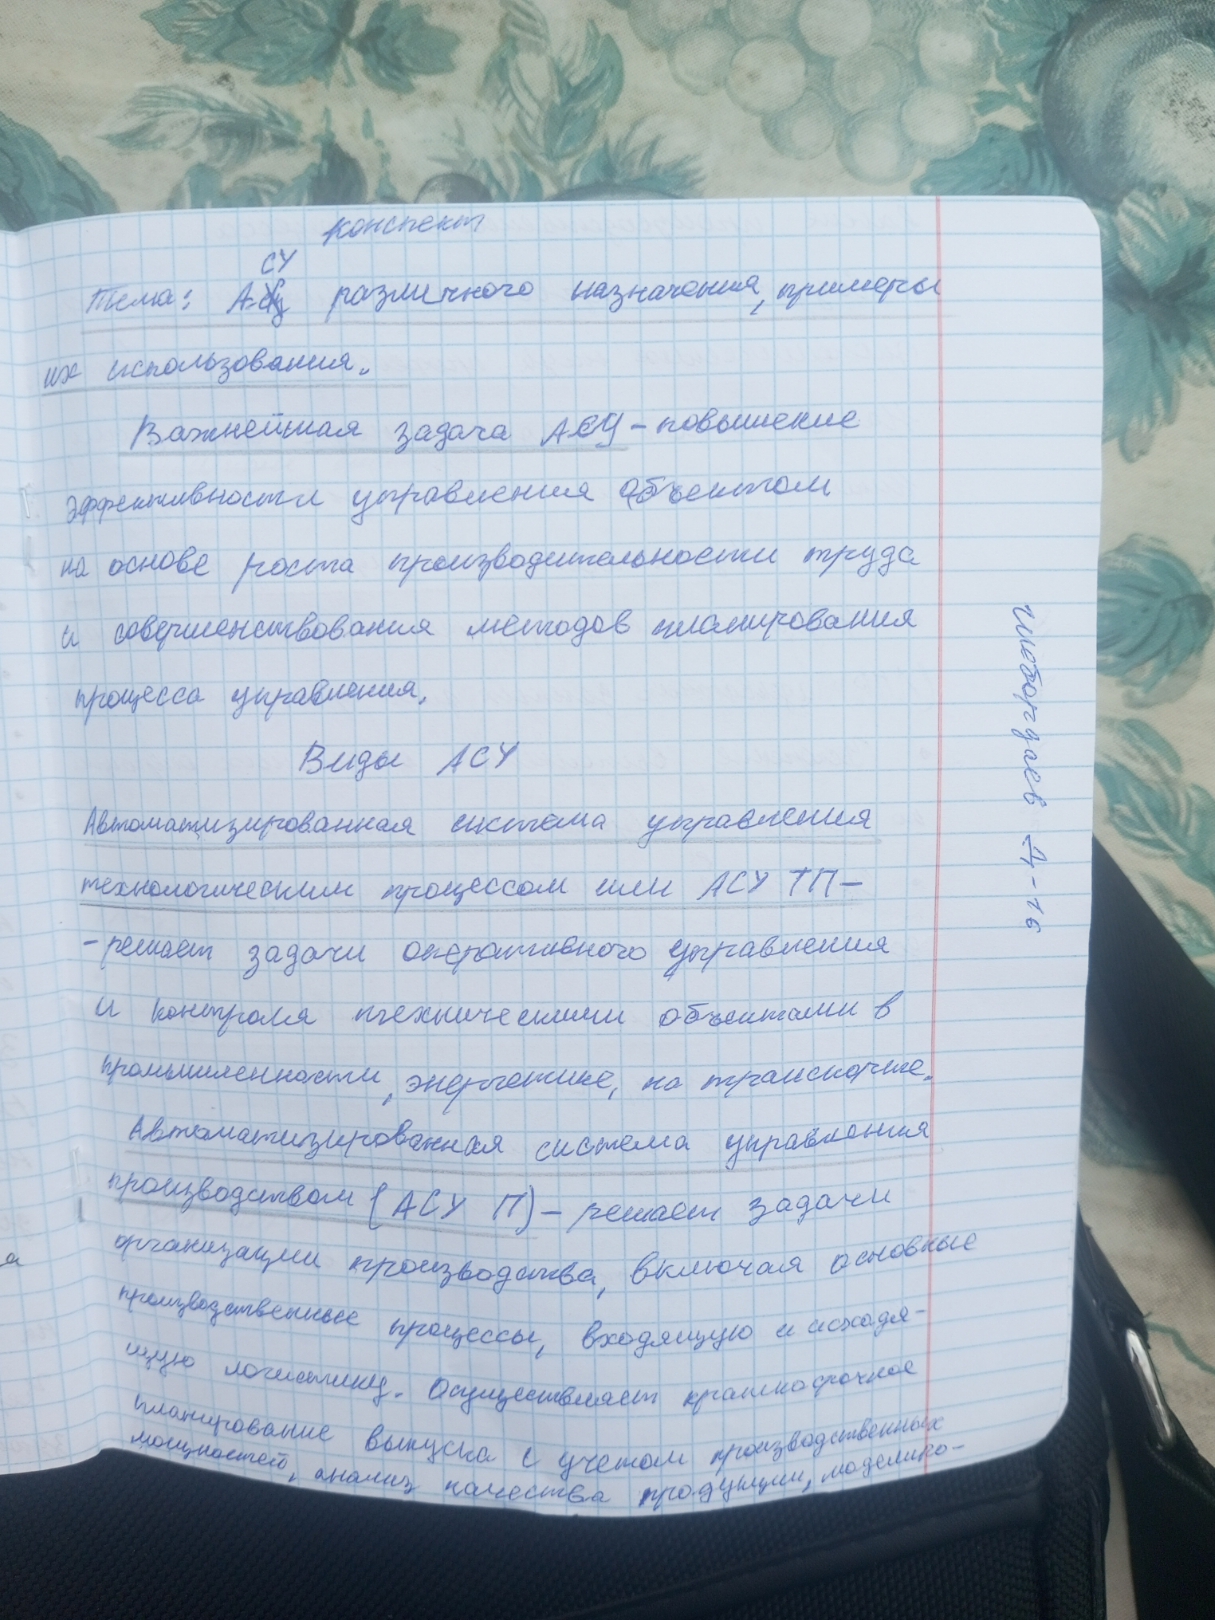 конспект
СУ
Тема: А различного назначения, примеры
их использования.
Важнейшая задача АСУ - повышение
эффективности управления объектом
на основе роста производительности труда
и совершенствования методов планирования
процесса управления.
Виды АСУ
Автоматизированная система управления
технологическим процессом или АСУ ТП -
- решает задачи оперативного управления
и контроля техническими объектами в
промышленности, энергетике, на транспорте.
Автоматизированная система управления
производством (АСУ П) - решает задачи
организации производства, включая основные
производственные процессы, входящую и исходя-
щую логистику. Осуществляет краткосрочное
планирование выпуска с учетом производственных
мощностей, анализ качества продукции, моделиро-
Д-16
а